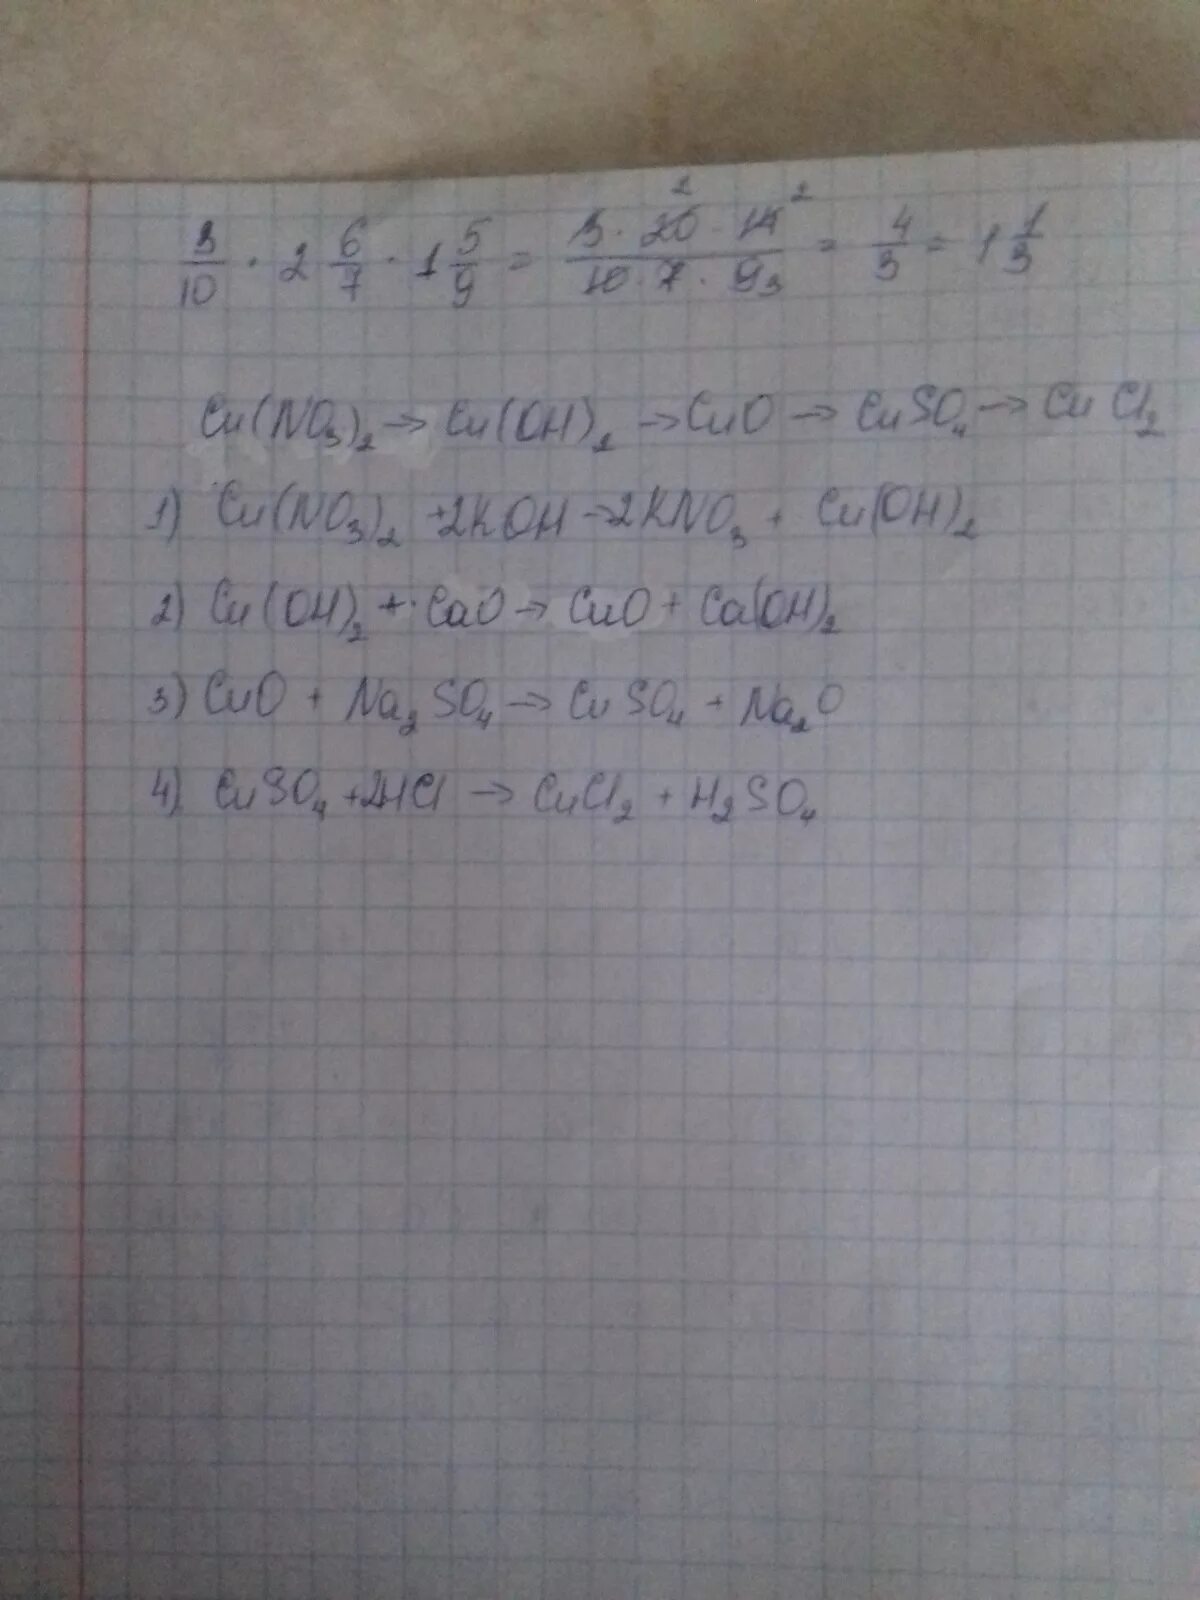 3/10 · 2 6/7 · 1 5/9 = 3 · 20² · 14² / 10 · 7 · 9₃ = 4/3 = 1 1/3
Cu(NO₃)₂ → Cu(OH)₂ → CuO → CuSO₄ → CuCl₂
1) Cu(NO₃)₂ + 2KOH → 2KNO₃ + Cu(OH)₂
2) Cu(OH)₂ + CaO → CuO + Ca(OH)₂
3) CuO + Na₂SO₄ → CuSO₄ + Na₂O
4) CuSO₄ + 2HCl → CuCl₂ + H₂SO₄